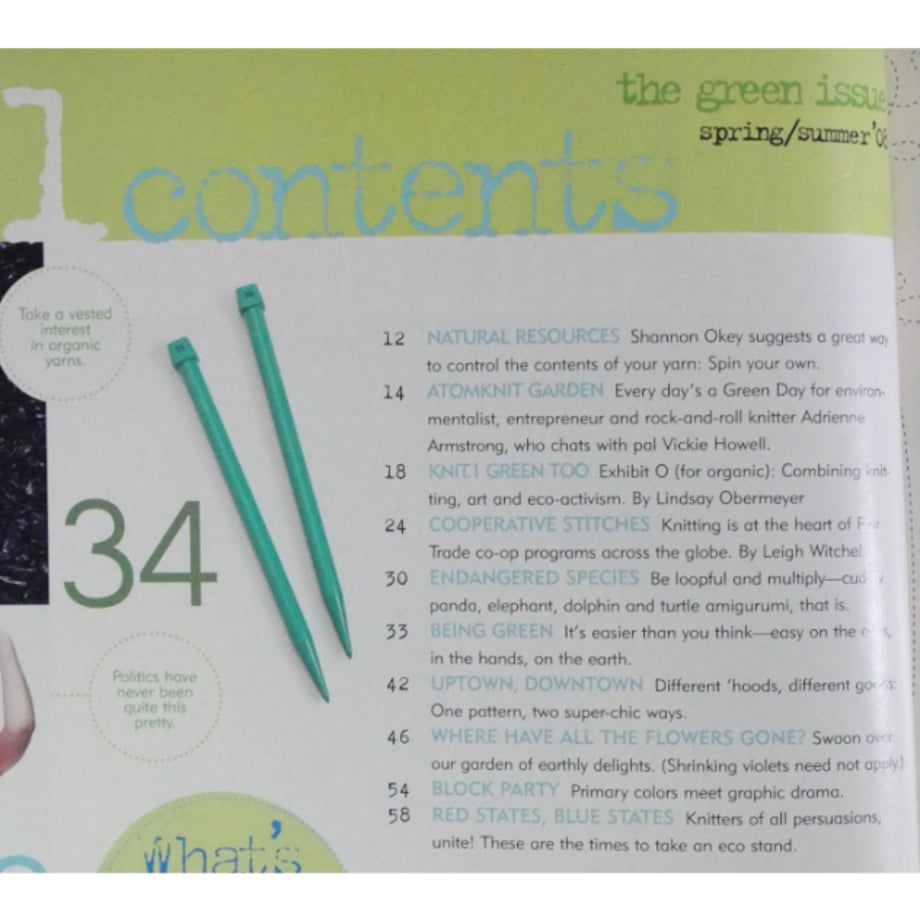 the green issue
spring/summer'08
1 contents
Take a vested
interest
in organic
yarns.
34
Politics have
never been
quite this
pretty.
what's
12 NATURAL RESOURCES Shannon Okey suggests a great way
to control the contents of your yarn: Spin your own.
14 ATOMKNIT GARDEN Every day's a Green Day for environ-
mentalist, entrepreneur and rock-and-roll knitter Adrienne
Armstrong, who chats with pal Vickie Howell.
18 KNIT.1 GREEN TOO Exhibit O (for organic): Combining knit-
ting, art and eco-activism. By Lindsay Obermeyer
24 COOPERATIVE STITCHES Knitting is at the heart of Fair
Trade co-op programs across the globe. By Leigh Witchel
30 ENDANGERED SPECIES Be loopful and multiply—cuddly
panda, elephant, dolphin and turtle amigurumi, that is.
33 BEING GREEN It's easier than you think—easy on the eyes,
in the hands, on the earth.
42 UPTOWN, DOWNTOWN Different 'hoods, different goods:
One pattern, two super-chic ways.
46 WHERE HAVE ALL THE FLOWERS GONE? Swoon over
our garden of earthly delights. (Shrinking violets need not apply.)
54 BLOCK PARTY Primary colors meet graphic drama.
58 RED STATES, BLUE STATES Knitters of all persuasions,
unite! These are the times to take an eco stand.